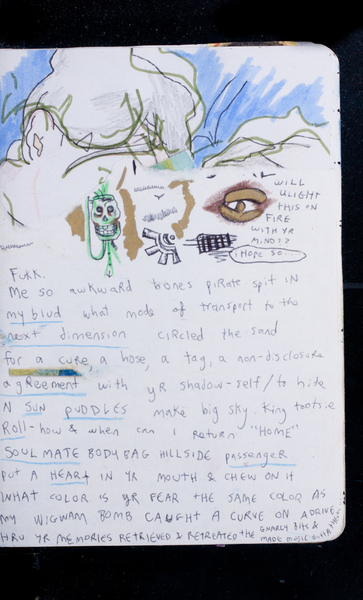 WILL
U LIGHT
THIS ON
FIRE
WITH YR
MIND??
I HOPE SO..
FUKK.
Me so awkward bones pirate spit IN
my blud what mode of transport to the
next dimension circled the sand
for a cure, a hose, a tag, a non-disclosure
agreement with yR shadow-self/to hide
N SUN PUDDLES make big sky. King tootsie
Roll-how & when can I return "HOME"
SOUL MATE BODY BAG HILLSIDE passenger
PUT A HEART IN YR MOUTH & CHEW ON IT
WHAT COLOR IS YR FEAR THE SAME COLOR AS
MY WIGWAM BOMB CAUGHT A CURVE ON A DRIVE
THRU YR MEMORIES RETRIEVED & RETREATED THE GNARLY BITS &
MADE MUSIC